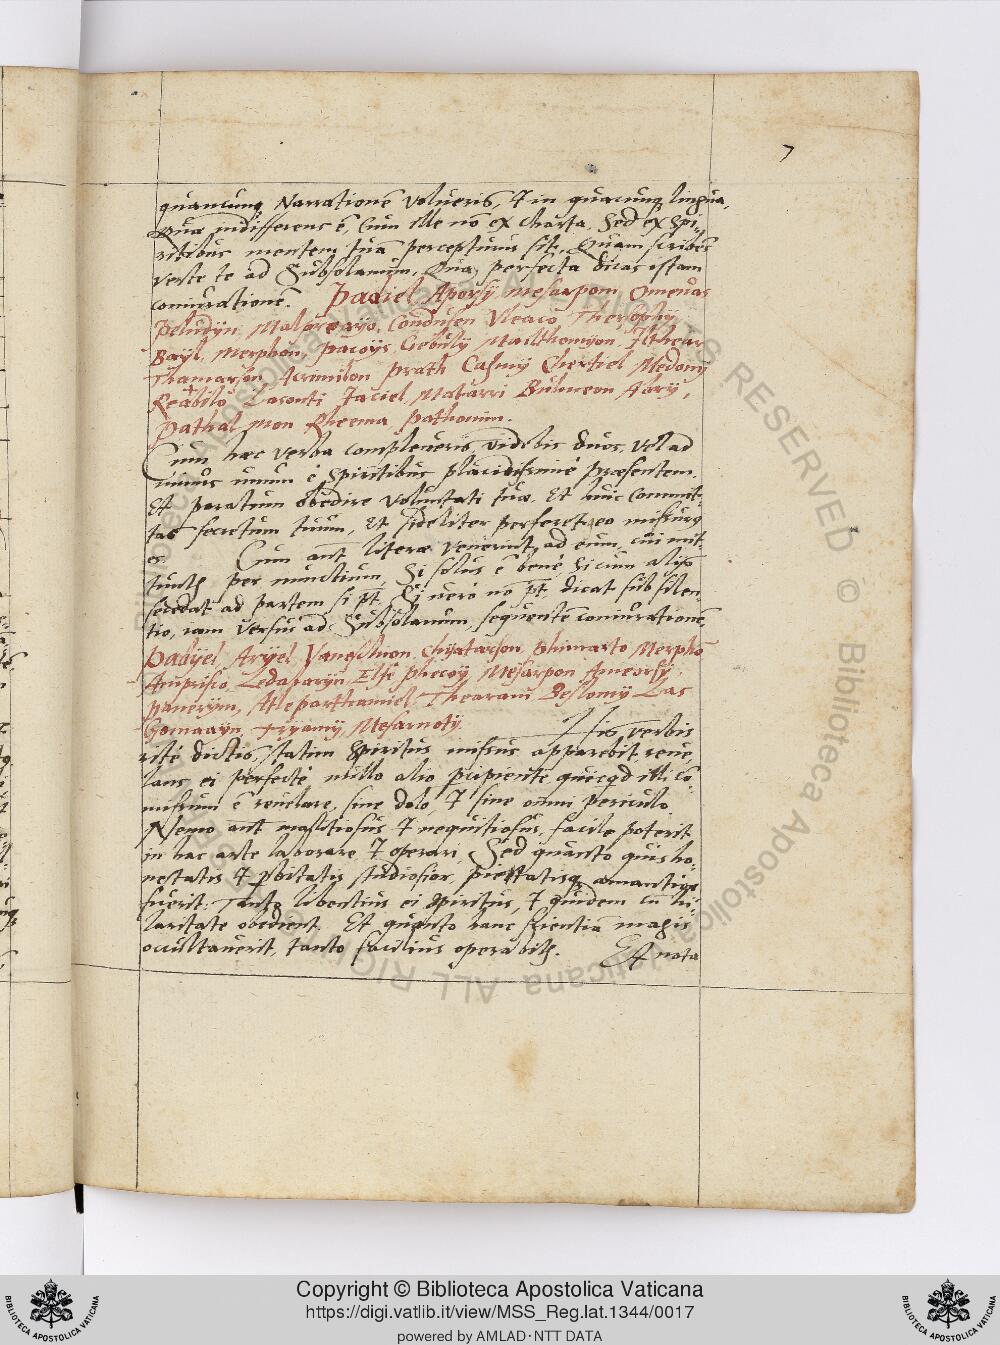 7
quamcunq Narrationē volueris, & in quacunq lingua,
quia indifferens ē, Cum ille nō ex charta, sed ex spi-
ritibus mentem tuā percepturus sit, Quam scribēs
verte te ad Subsolanum, Qua perfecta dicas istam
coniurationē. Padiel Aporsy mesarpon Omeuas
Peludyn Malpreaxo, Condusen Vleaco Thersephy
Bayl Merphon, Paroys Gebuly Mailthomyon Ilthear
Thamarson Acrimiton Prath Casmy Chertiel Medony
Reabdo Lasonti Jaciel Mabarri Bulmeon Abry,
Pathal mon Rheema pathonim.
Cum haec verba compleueris, videbis duos, vel ad
minus unum ē spiritibus placidissimē praesentem.
Et paratum obedire voluntati tuae. Et huic commit-
tas secretum tuum, Et fideliter perferet, eo missurus
es. Cum aut literae venerint ad eum, cui mit-
tuntꝭ per nunctium, si solus ē benē si cum alijs
secedat ad partem si pt. Si vero nō pt, dicat sub silen-
tio, iam versus ad Subsolanum, sequentē coniurationē,
Padiyel Aryel Vanescluon, Chyatarson phimarto Merphō
Amprisco Ledabaryn, Else phecoy Mesarpon Ameorsy,
paneryn, Atle parthamiel Thearani Beslomy Las
Gomaayn Tryamy Mesarnoty. His verbis
rite dictis, statim Spiritus missus apparebit, reue-
lans ei perfectē nullo alio pcipiente quicqd illi cō-
missum ē reuelare, sine dolo, & sine omni periculo.
Nemo aut malitiosus & nequitiosus, facile poterit
in hac arte laborare & operari. Sed quanto quis ho-
nestatis & pbitatis studiosior, pietatisq amantior
fuerit: Tanto libentius ei Spiritus, & quidem cū hi-
laritate obedient. Et quanto hanc scientiā magis
occultauerit, tanto facilius operabitꝭ. Et nota
Copyright © Biblioteca Apostolica Vaticana
https://digi.vatlib.it/view/MSS_Reg.lat.1344/0017
powered by AMLAD·NTT DATA
BIBLIOTECA APOSTOLICA VATICANA
BIBLIOTECA APOSTOLICA VATICANA